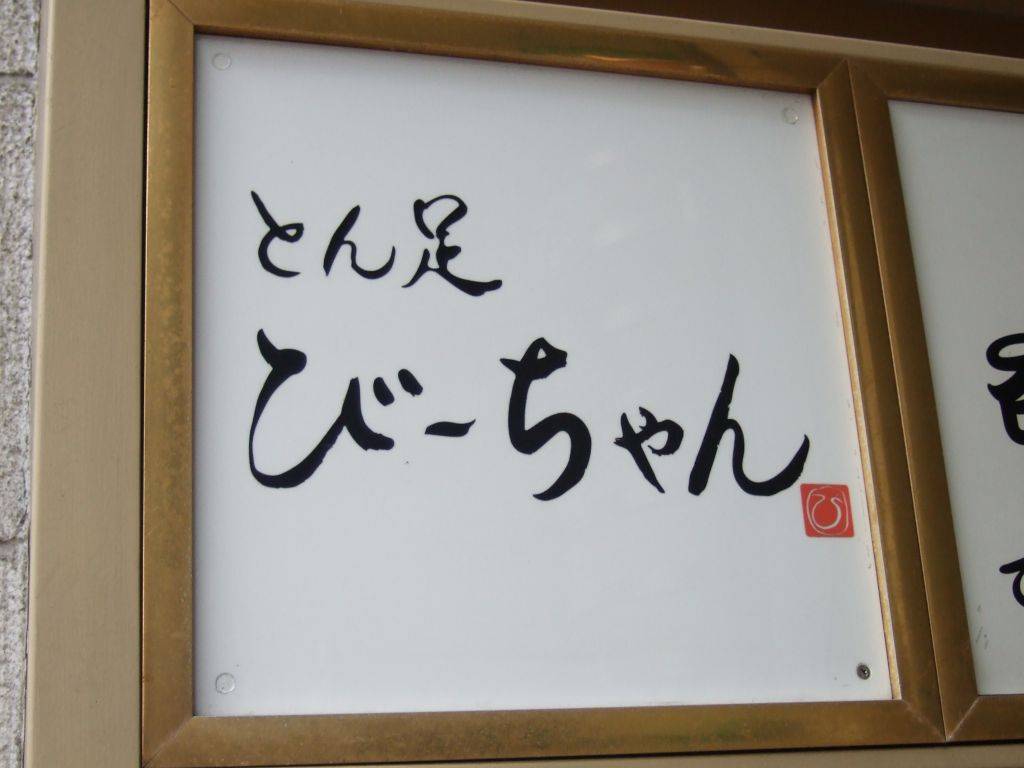 とん足
びーちゃん
ひ